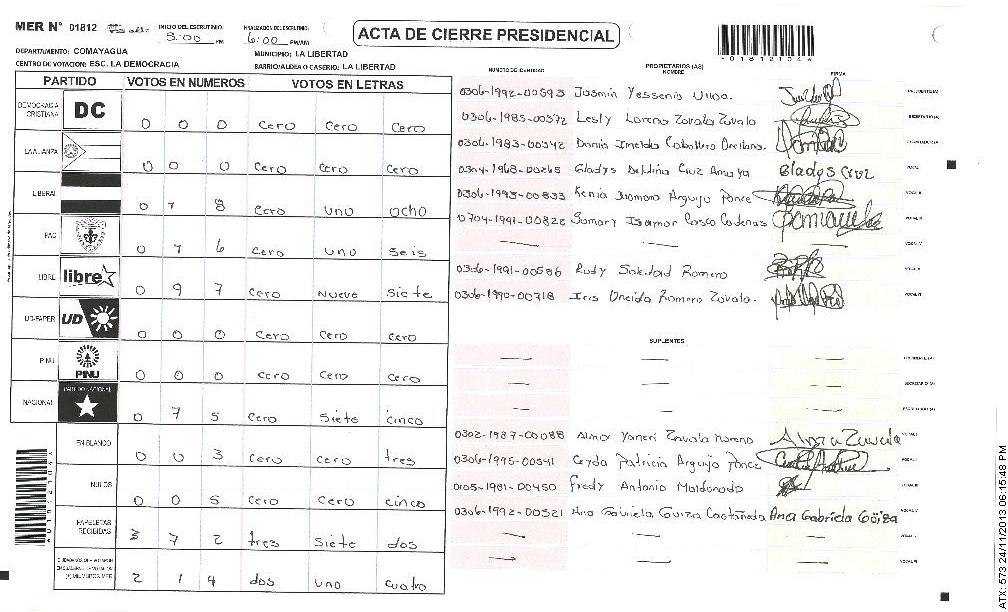 MER N° 01812
INICIO DEL ESCRUTINIO: 5:00 PM
FINALIZACION DEL ESCRUTINIO: 6:00 PM/AM
ACTA DE CIERRE PRESIDENCIAL
0181210
DEPARTAMENTO: COMAYAGUA
MUNICIPIO: LA LIBERTAD
CENTRO DE VOTACION: ESC. LA DEMOCRACIA
BARRIO/ALDEA O CASERIO: LA LIBERTAD
PARTIDO VOTOS EN NUMEROS VOTOS EN LETRAS
DEMOCRACIA CRISTIANA DC 0 0 0 cero cero cero
LA ALIANZA 0 0 0 cero cero cero
LIBERAL 0 1 8 cero uno ocho
PAC 0 1 6 cero uno seis
LIBRE libre 0 9 7 cero nueve siete
UD-FAPER UD 0 0 0 cero cero cero
PINU PINU 0 0 0 cero cero cero
NACIONAL PARTIDO NACIONAL 0 7 5 cero siete cinco
EN BLANCO 0 0 3 cero cero tres
NULOS 0 0 5 cero cero cinco
PAPELETAS RECIBIDAS 3 7 2 tres siete dos
MIEMBROS MER 2 1 4 dos uno cuatro
NUMERO DE IDENTIDAD PROPIETARIOS (AS) NOMBRE FIRMA
0306-1992-00593 Jasmin Yessenia PRESIDENTE(A)
0306-1985-00372 Lesly Lorena Zavala Zavala SECRETARIO(A)
0306-1983-00342 Dania Imelda Caballero Orellana
0304-1968-00265 Gladys Cruz Amaya Gladys Cruz VOCAL
0306-1993-00833 Kenia Arguijo Ponce VOCAL
0704-1991-00822 Isamar Cardenas VOCAL
VOCAL
0306-1991-00586 Rudy Soledad Romero VOCAL
0306-1990-00718 Iris Oneida Romero Zavala VOCAL
SUPLENTES
PRESIDENTE (A)
SECRETARIO (A)
0302-1987-00088 Alma Yaneri Zavala Moreno Alma Zavala VOCAL
0306-1995-00541 Patricia Arguijo Ponce VOCAL
0105-1981-00450 Fredy Antonio Maldonado VOCAL
0306-1992-00521 Ana Gabriela Guiza Castañada Ana Gabriela Güiza VOCAL
VOCAL
VOCAL
ATX: 573 24/11/2013 06:15:48 PM